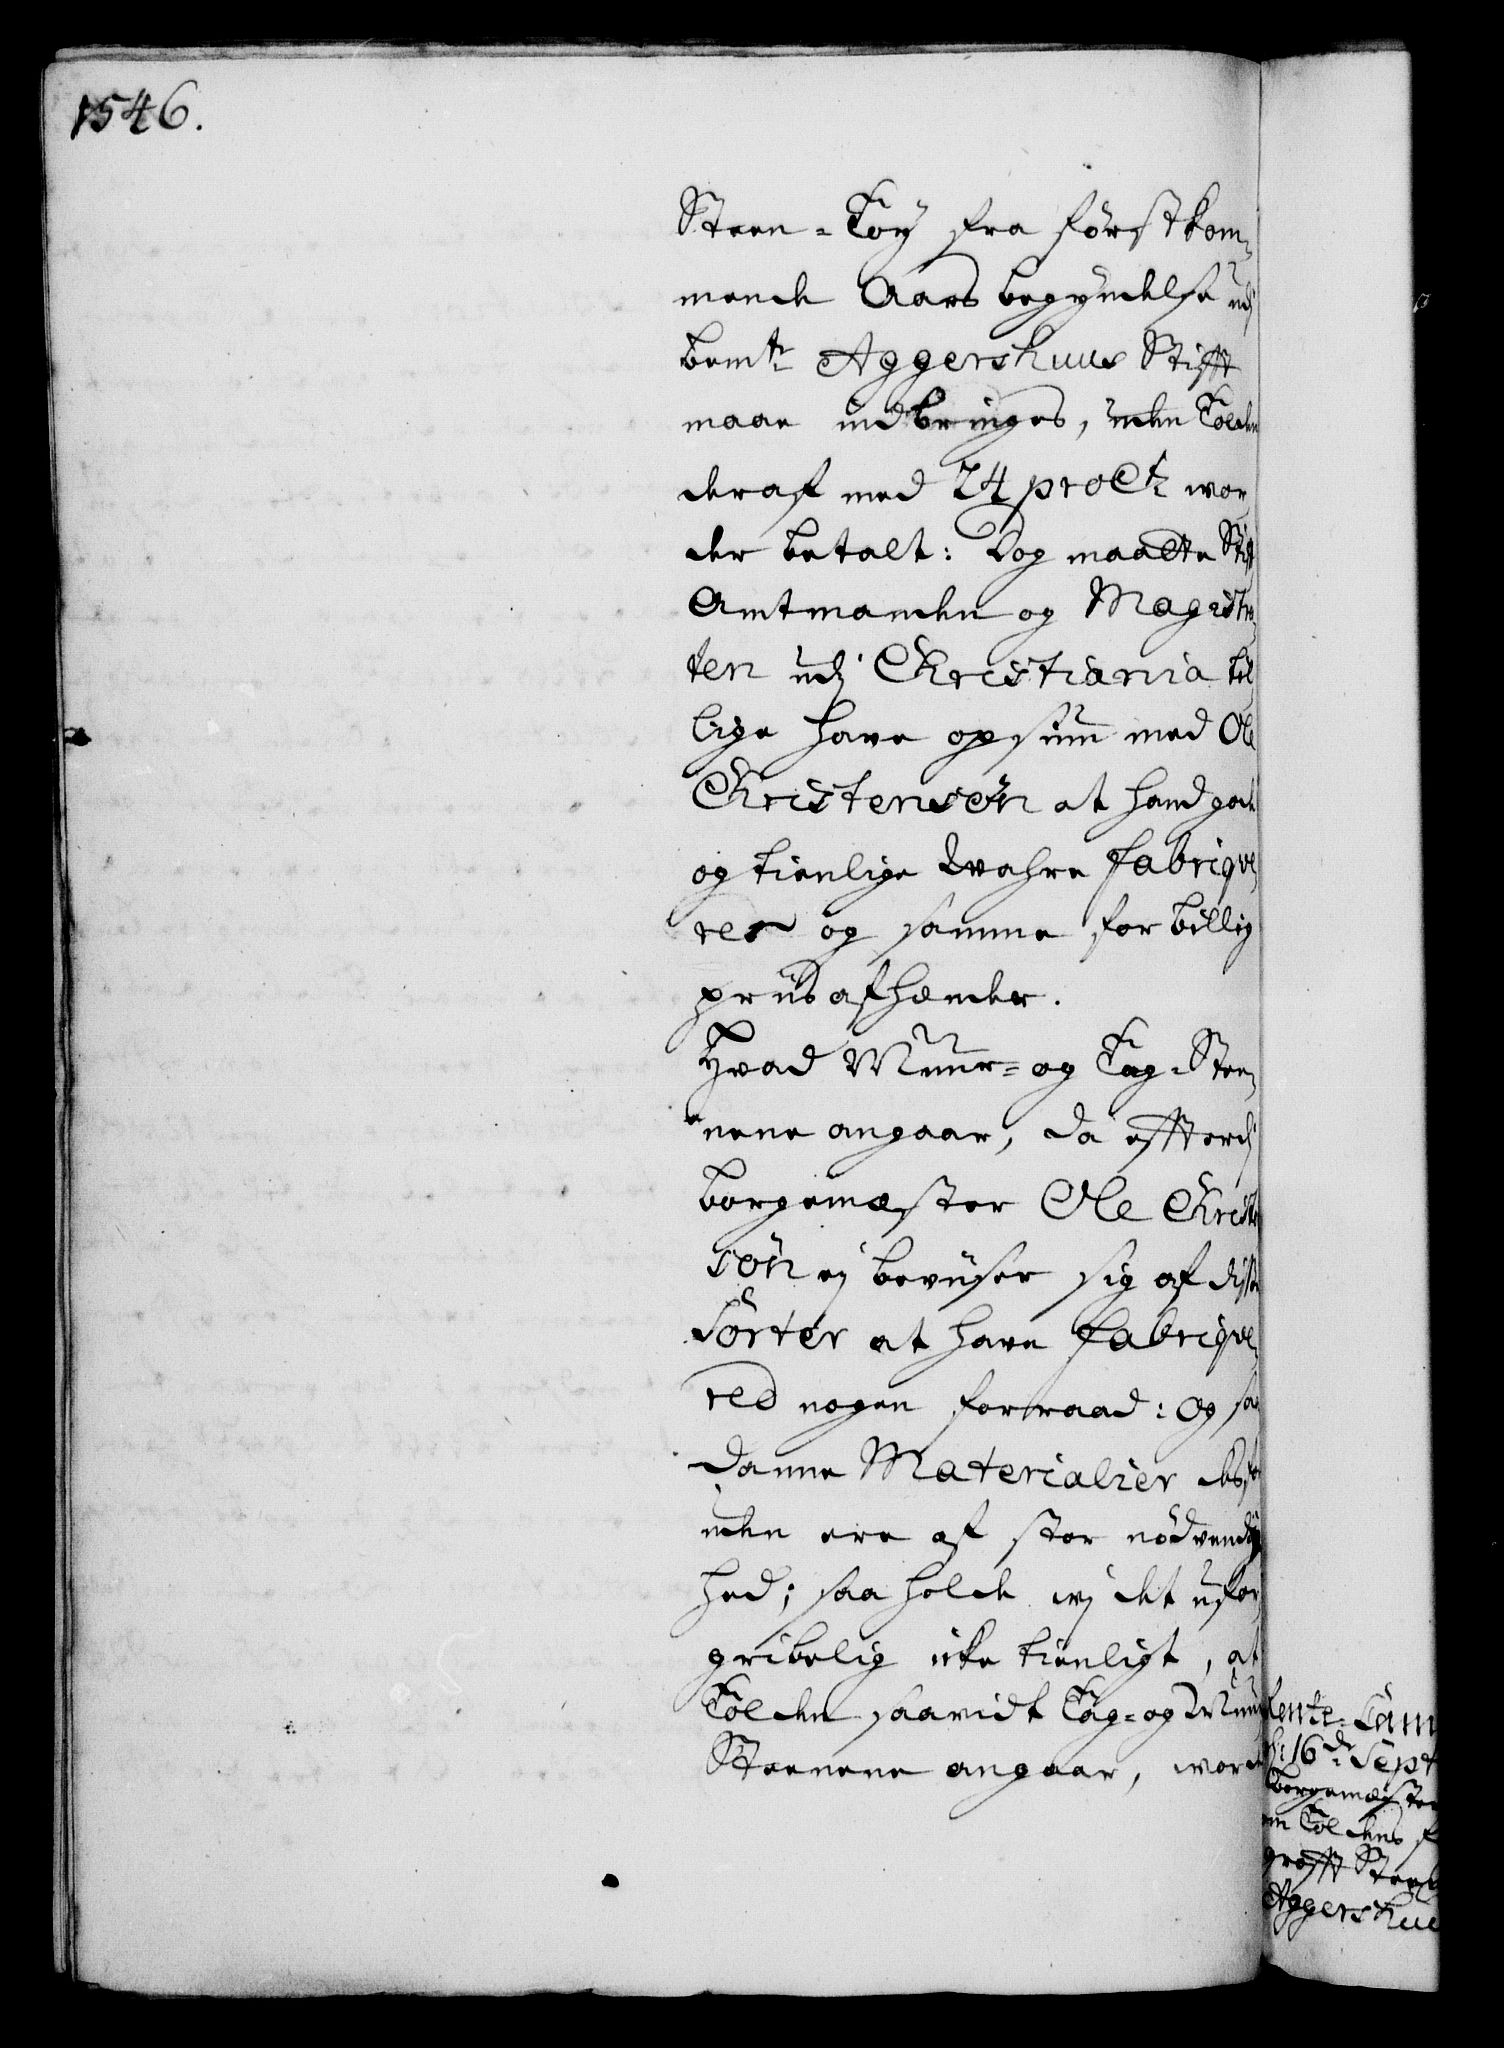 1546.
Steen-Töy fra förstkom-
mende Aars begyndelse udj
bemte Aggershuus Stifft
maae indbringes, uden Tolden
deraf med 24 proCto wor-
der betalt: Dog maatte Stift
Amtmanden og Magistra-
ten udj Christiania til-
lige have opsiun med Ole
Christensön at hand gode
og tienlige Wahre fabriqve-
rer og samme for billig
priis afhender.
Hvad Muur- og Tag-Stee-
nene angaar, da effterdj
borgemester Ole Christen
sön ej beviiser sig af disse
Sorter at have fabriqve-
red nogen forraad: Og saa
danne Materialier dess-
uden ere af stor nödvendig
hed; saa holde wj det ufor-
gribelig icke tienligt, at
Tolden saavidt Tag- og Muur
Steenene angaar, worde
Rente-Cam
d: 16de Sept
Borgemester
om Toldens f
grofft Steen
Aggershuu